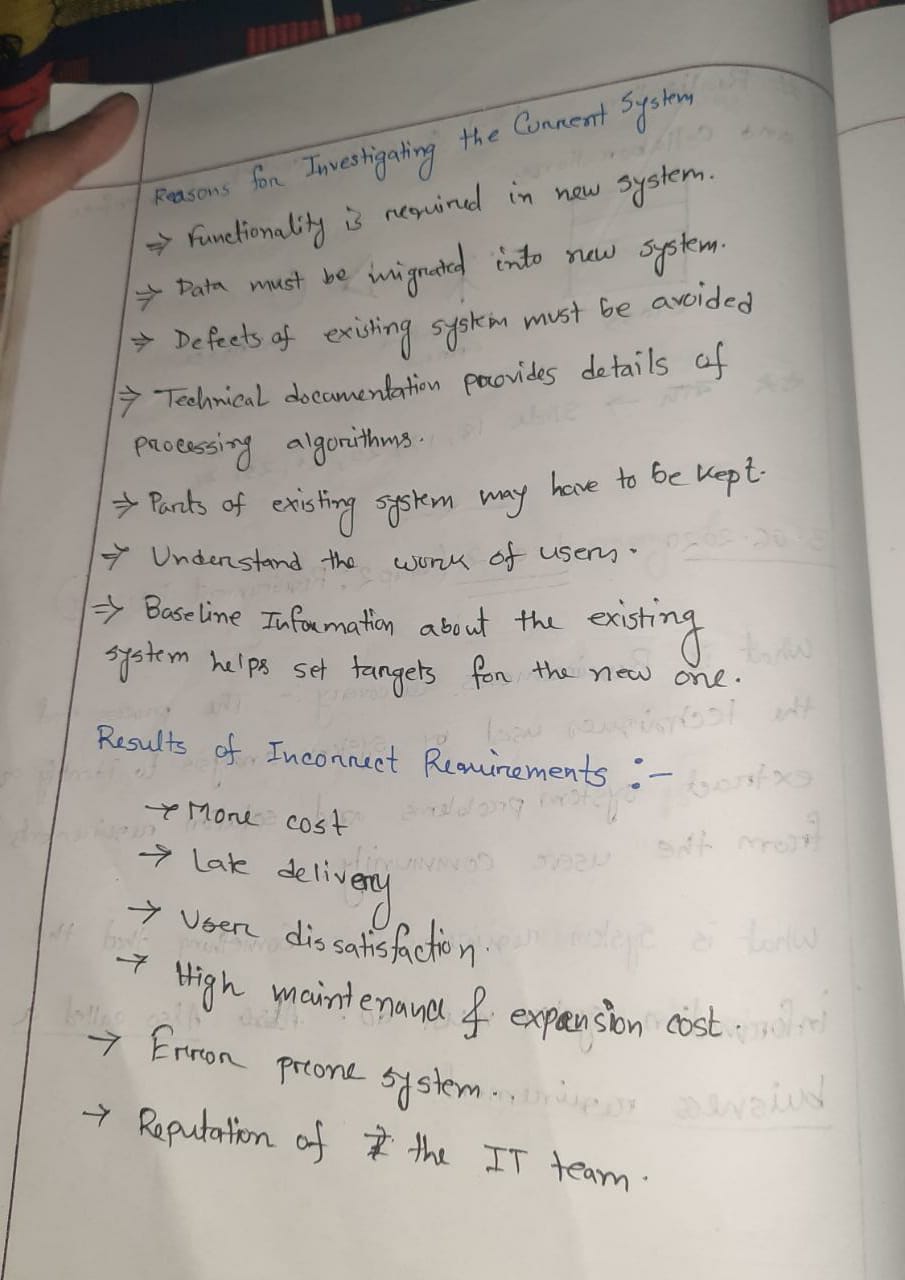 Reasons for Investigating the Current System
⇒ Functionality is required in new system.
⇒ Data must be migrated into new system.
⇒ Defects of existing system must be avoided
⇒ Technical documentation provides details of
processing algorithms.
⇒ Parts of existing system may have to be kept.
⇒ Understand the work of users.
⇒ Baseline Information about the existing
system helps set targets for the new one.
Results of Incorrect Requirements :-
→ More cost
→ Late delivery
→ User dissatisfaction.
→ High maintenance & expansion cost.
→ Error prone system.
→ Reputation of the IT team.